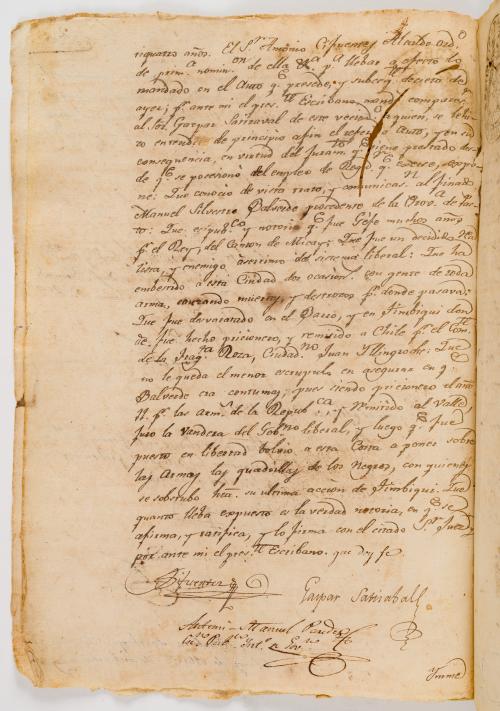 riquatro años. El S.r Antonio Cifuentes Alcalde ord.o
de prim.a nomin.on de ella &.a p.a llebar a efecto lo
mandado en el Auto q.e precede, y subceq.te decreto de
ayer; p.r ante mi el pres.te Escribano mandó comparec.r
al Sor. Gaspar Satizaval de este vecind.o a quien, se
en de principio a fin el referido Auto, y en su
consequencia, en virtud del juram.to q.e tiene prestado des-
de q.e se posesionó del empleo de Regid.r q.e exerse, expo-
ne: Que conocio de vista trato, y comunicas.n al finado
Manuel Silvestre Balverde procedente de la Prov.a de Pas-
to: Que es pub.co y notorio q.e fue Gefe muchos años
p.r el Rey, del Canton de Micay: Que fue un decidido Rea-
lista, y enemigo aserrimo del sistema liberal: Que ha
embestido a esta Ciudad dos ocasion.s con gente de toda
arma, causando muertes, y destrozos p.r donde pasava:
Que fue desvaratado en el Dario, y en Timbiqui don-
de fue hecho pricionero, y remitido a Chile p.r el Com.te
de la Frag.ta Rosa, Ciudad.no Juan Illingroht: Que
no le queda el menor escrupulo en asegurar en q.e
Balverde era contumas, pues siendo pricionero el año
11 p.r las Arm.s de la Repub.ca, y remitido al Valle
juro la Vandera del Gob.no liberal, y luego q.e fue
puesto en libertad bolvio a esta Costa a poner sobre
las Armas las quadrillas de los Negros, con quienes
se sobstubo hta. su ultima accion de Timbiqui. Que
quanto lleba expuesto es la verdad notoria, en q.e se
afirma, y ratifica, y lo firma con el citado S.or Juez
por ante mi el pres.te Escribano. que doy fe
Cifuentes
Gaspar Satizabal
Antoni Manuel
Es.no Pub.co Int.o de Gov.no